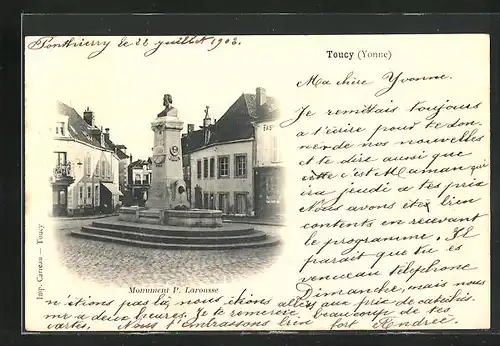 Ponthierry le 22 juillet 1903.
Toucy (Yonne)
Ma chère Yvonne.
Je remettais toujours
à t'écrire pour te don-
ner de nos nouvelles
et te dire aussi que
c'est Maman qui
ira jeudi à tes prix
Nous avons été bien
contents en recevant
le programme. Il
paraît que tu es
venue au téléphone
Dimanche, mais nous
n'étions pas là, nous étions allés aux prix de
à deux heures. Je te remercie beaucoup de tes
cartes. Nous t'embrassons bien fort Andrée.
Monument P. Larousse
Imp. — Toucy